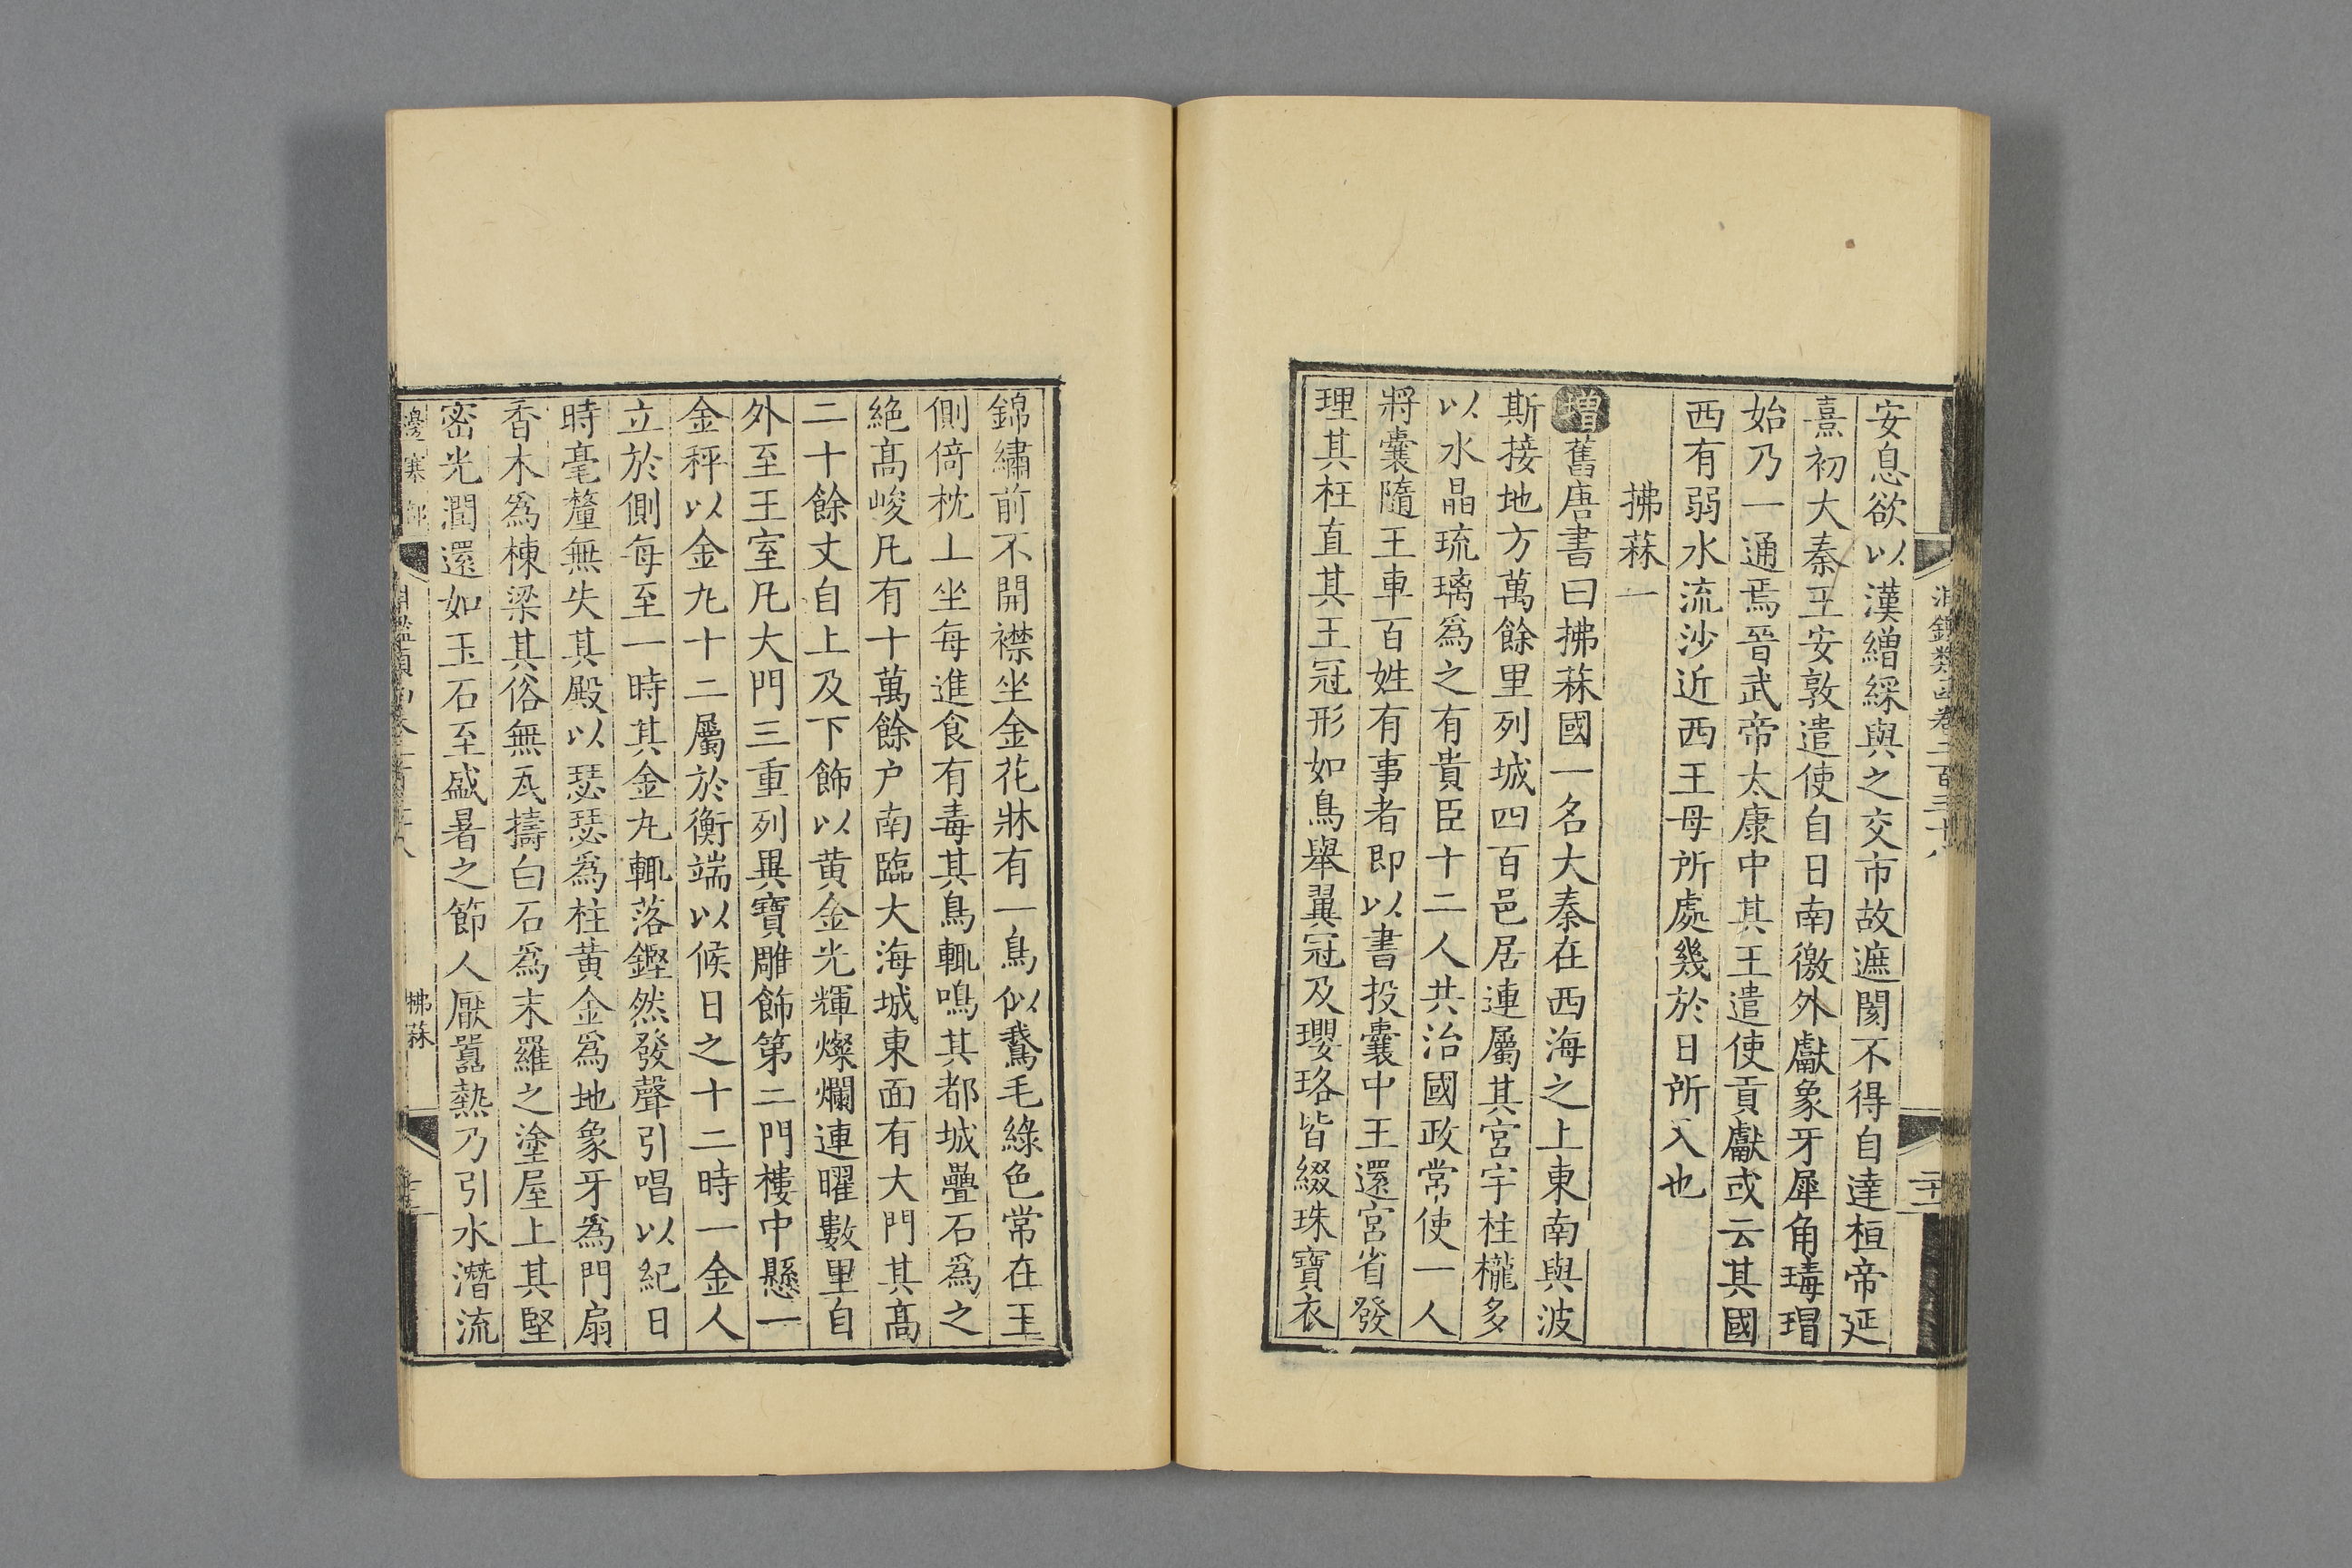 淵鑑類函卷二百三十八
二十二
安息欲以漢繒綵與之交市故遮閡不得自達桓帝延
熹初大秦王安敦遣使自日南徼外獻象牙犀角瑇瑁
始乃一通焉晉武帝太康中其王遣使貢獻或云其國
西有弱水流沙近西王母所處幾於日所入也
拂菻一
增舊唐書曰拂菻國一名大秦在西海之上東南與波
斯接地方萬餘里列城四百邑居連屬其宮宇柱櫳多
以水晶琉璃爲之有貴臣十二人共治國政常使一人
將囊隨王車百姓有事者即以書投囊中王還宮省發
理其枉直其王冠形如鳥舉翼冠及瓔珞皆綴珠寶衣
錦繡前不開襟坐金花牀有一鳥似鵞毛綠色常在王
側倚枕上坐每進食有毒其鳥輒鳴其都城疊石爲之
絕髙峻凡有十萬餘户南臨大海城東面有大門其髙
二十餘丈自上及下飾以黄金光輝燦爛連曜數里自
外至王室凡大門三重列異寶雕飾第二門樓中懸一
金秤以金丸十二屬於衡端以候日之十二時一金人
立於側每至一時其金丸輒落鏗然發聲引唱以紀日
時毫釐無失其殿以瑟瑟爲柱黄金爲地象牙爲門扇
香木爲棟梁其俗無瓦擣白石爲末羅之塗屋上其堅
密光潤還如玉石至盛暑之節人厭囂熱乃引水潛流
邊塞部
拂菻